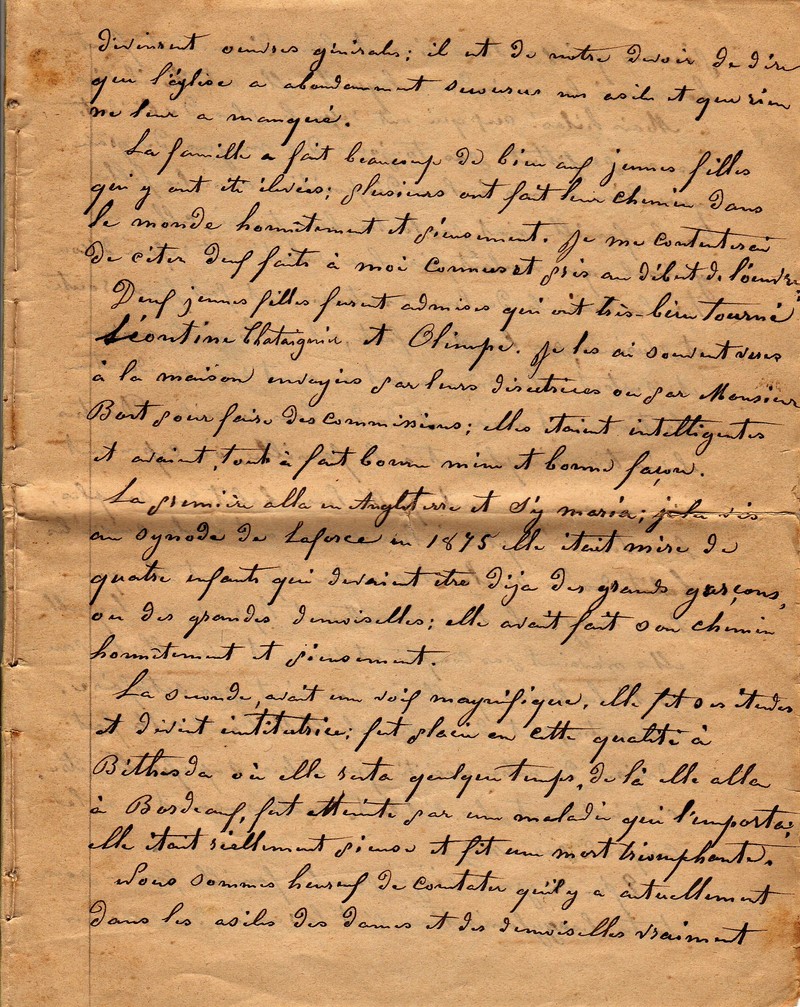 divinrent oeuvres générales; il est de notre devoir de dire
que l'église a abondamment secourus nos asiles et que rien
ne leur a manqué.
La famille a fait beaucoup de bien aux jeunes filles
qui y ont été élevées; plusieurs ont fait leur chemin dans
le monde honnêtement et pieusement. Je me contenterai
de citer deux faits à moi connus et pris au début de l'oeuvre;
Deux jeunes filles furent admises qui ont très-bien tourné
Léontine Chataignié et Olimpe. Je les ai souvent vues
à la maison envoyées par leurs directrices ou par Monsieur
Bost pour faire des commissions; elles étaient intelligentes
et avaient, tout à fait bonne mine et bonne façon.
La première alla en Angleterre et s'y maria; je la vis
au synode de Laforce en 1875 elle était mère de
quatre enfants qui devaient être déja des grands garçons,
ou des grandes demoiselles; elle avait fait son chemin
honnêtement et pieusement.
La seconde, avait une voix magnifique, elle fit ses études
et devint institutrice; fut placée en cette qualité à
Béthesda où elle resta quelque temps, de là elle alla
à Bordeaux, fut atteinte par une maladie qui l'emporta;
elle était réellement pieuse et fit une mort triomphante.
Nous sommes heureux de constater qu'il y a actuellement
dans les asiles des dames et des demoiselles vraiment